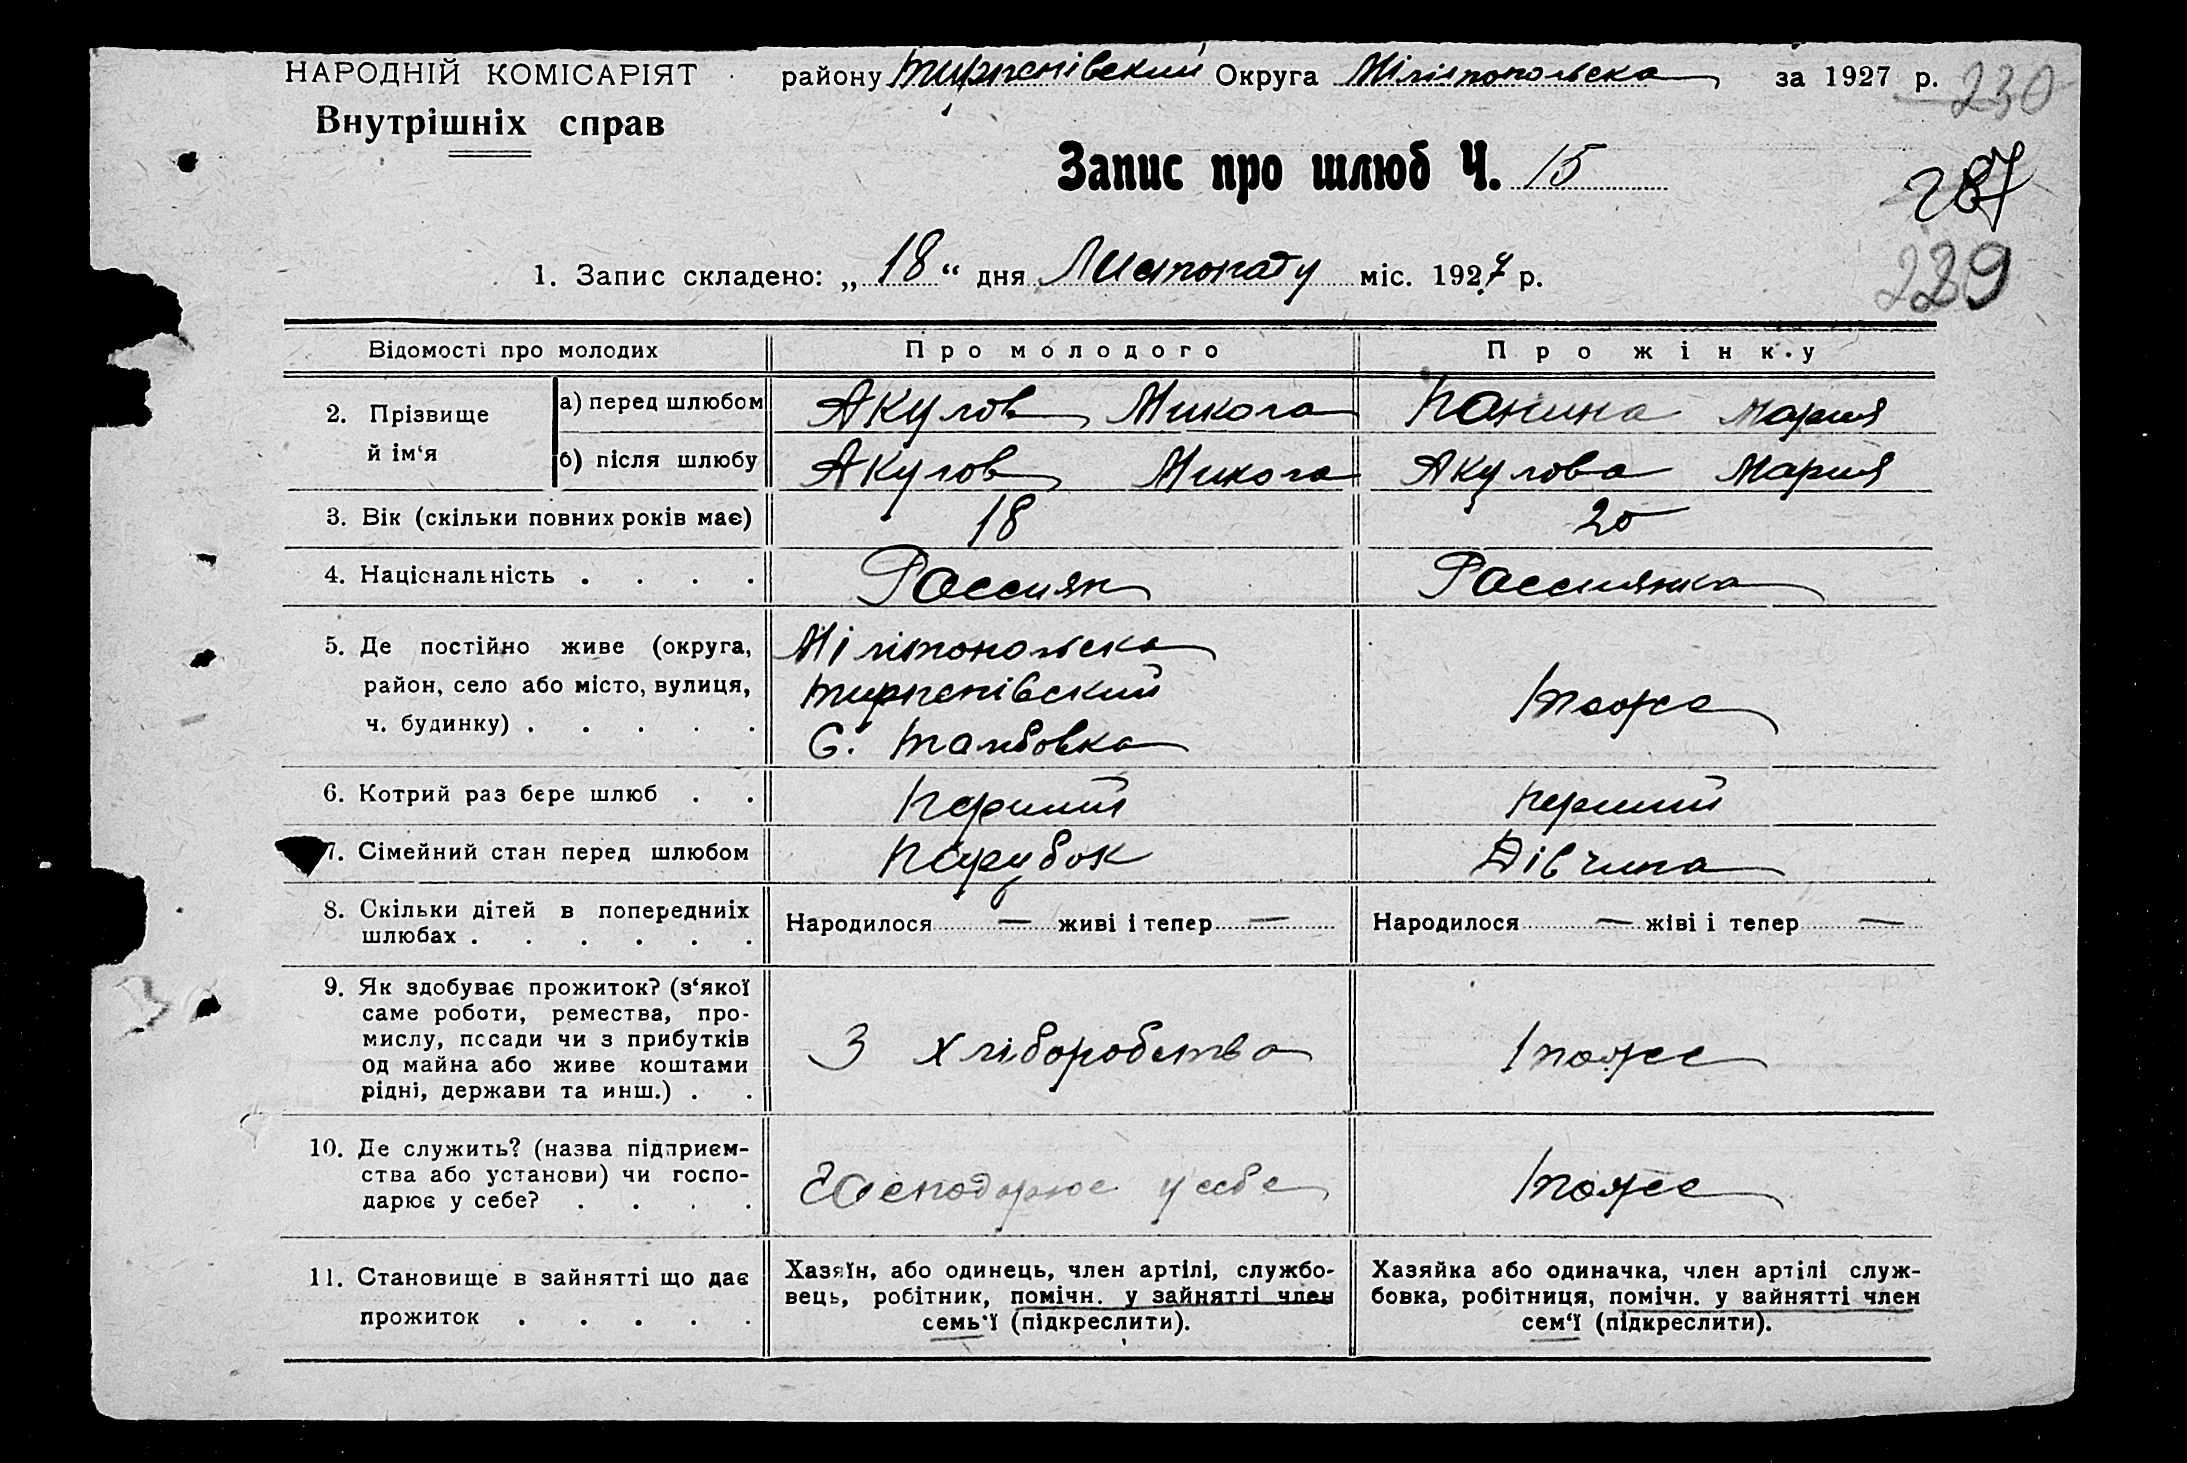 НАРОДНІЙ КОМІСАРІЯТ
Внутрішніх справ
району Тирпенівский Округа Мілітопольска за 1927 р.
230
Запис про шлюб Ч. 15
287
229
1. Запис складено: „18“ дня Листопаду міс. 1927 р.
Відомості про молодих
Про молодого
Про жінку
2. Прізвище й ім‘я
а) перед шлюбом
Акулов Микола
Панина Мария
б) після шлюбу
Акулов Микола
Акулова Мария
3. Вік (скільки повних років має)
18
20
4. Національність . . . .
Россиян
Россиянка
5. Де постійно живе (округа,
район, село або місто, вулиця,
ч. будинку) . . . . .
Мілітопольска
Тирпенівский
С. Тамбовка
Тоже
6. Котрий раз бере шлюб . .
Перший
Перший
7. Сімейний стан перед шлюбом
Парубок
Дівчина
8. Скільки дітей в попередниіх
шлюбах . . . . . .
Народилося — живі і тепер —
Народилося — жіві і тепер —
9. Як здобуває прожиток? (з‘якої
саме роботи, ремества, про-
мислу, посади чи з прибутків
од майна або живе коштами
рідні, держави та инш.) . .
З хліборобства
Тоже
10. Де служить? (назва підприєм-
ства або установи) чи госпо-
дарює у себе? . . . .
Господарює у себе
Тоже
11. Становище в зайнятті що дає
прожиток . . . . .
Хазяїн, або одинець, член артілі, службо-
вець, робітник, помічн. у зайнятті член
семь‘ї (підкреслити).
Хазяйка або одиначка, член артілі служ-
бовка, робітниця, помічн. у зайнятті член
сем‘ї (підкреслити).